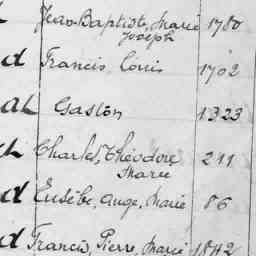 Jean-Baptiste, Marie 1780
Joseph
d Francis, Louis 1702
al Gaston 1323
Charles, Théodore 211
Marie
d Eusèbe, Ange, Marie 86
d Francis, Pierre, Marie 1842